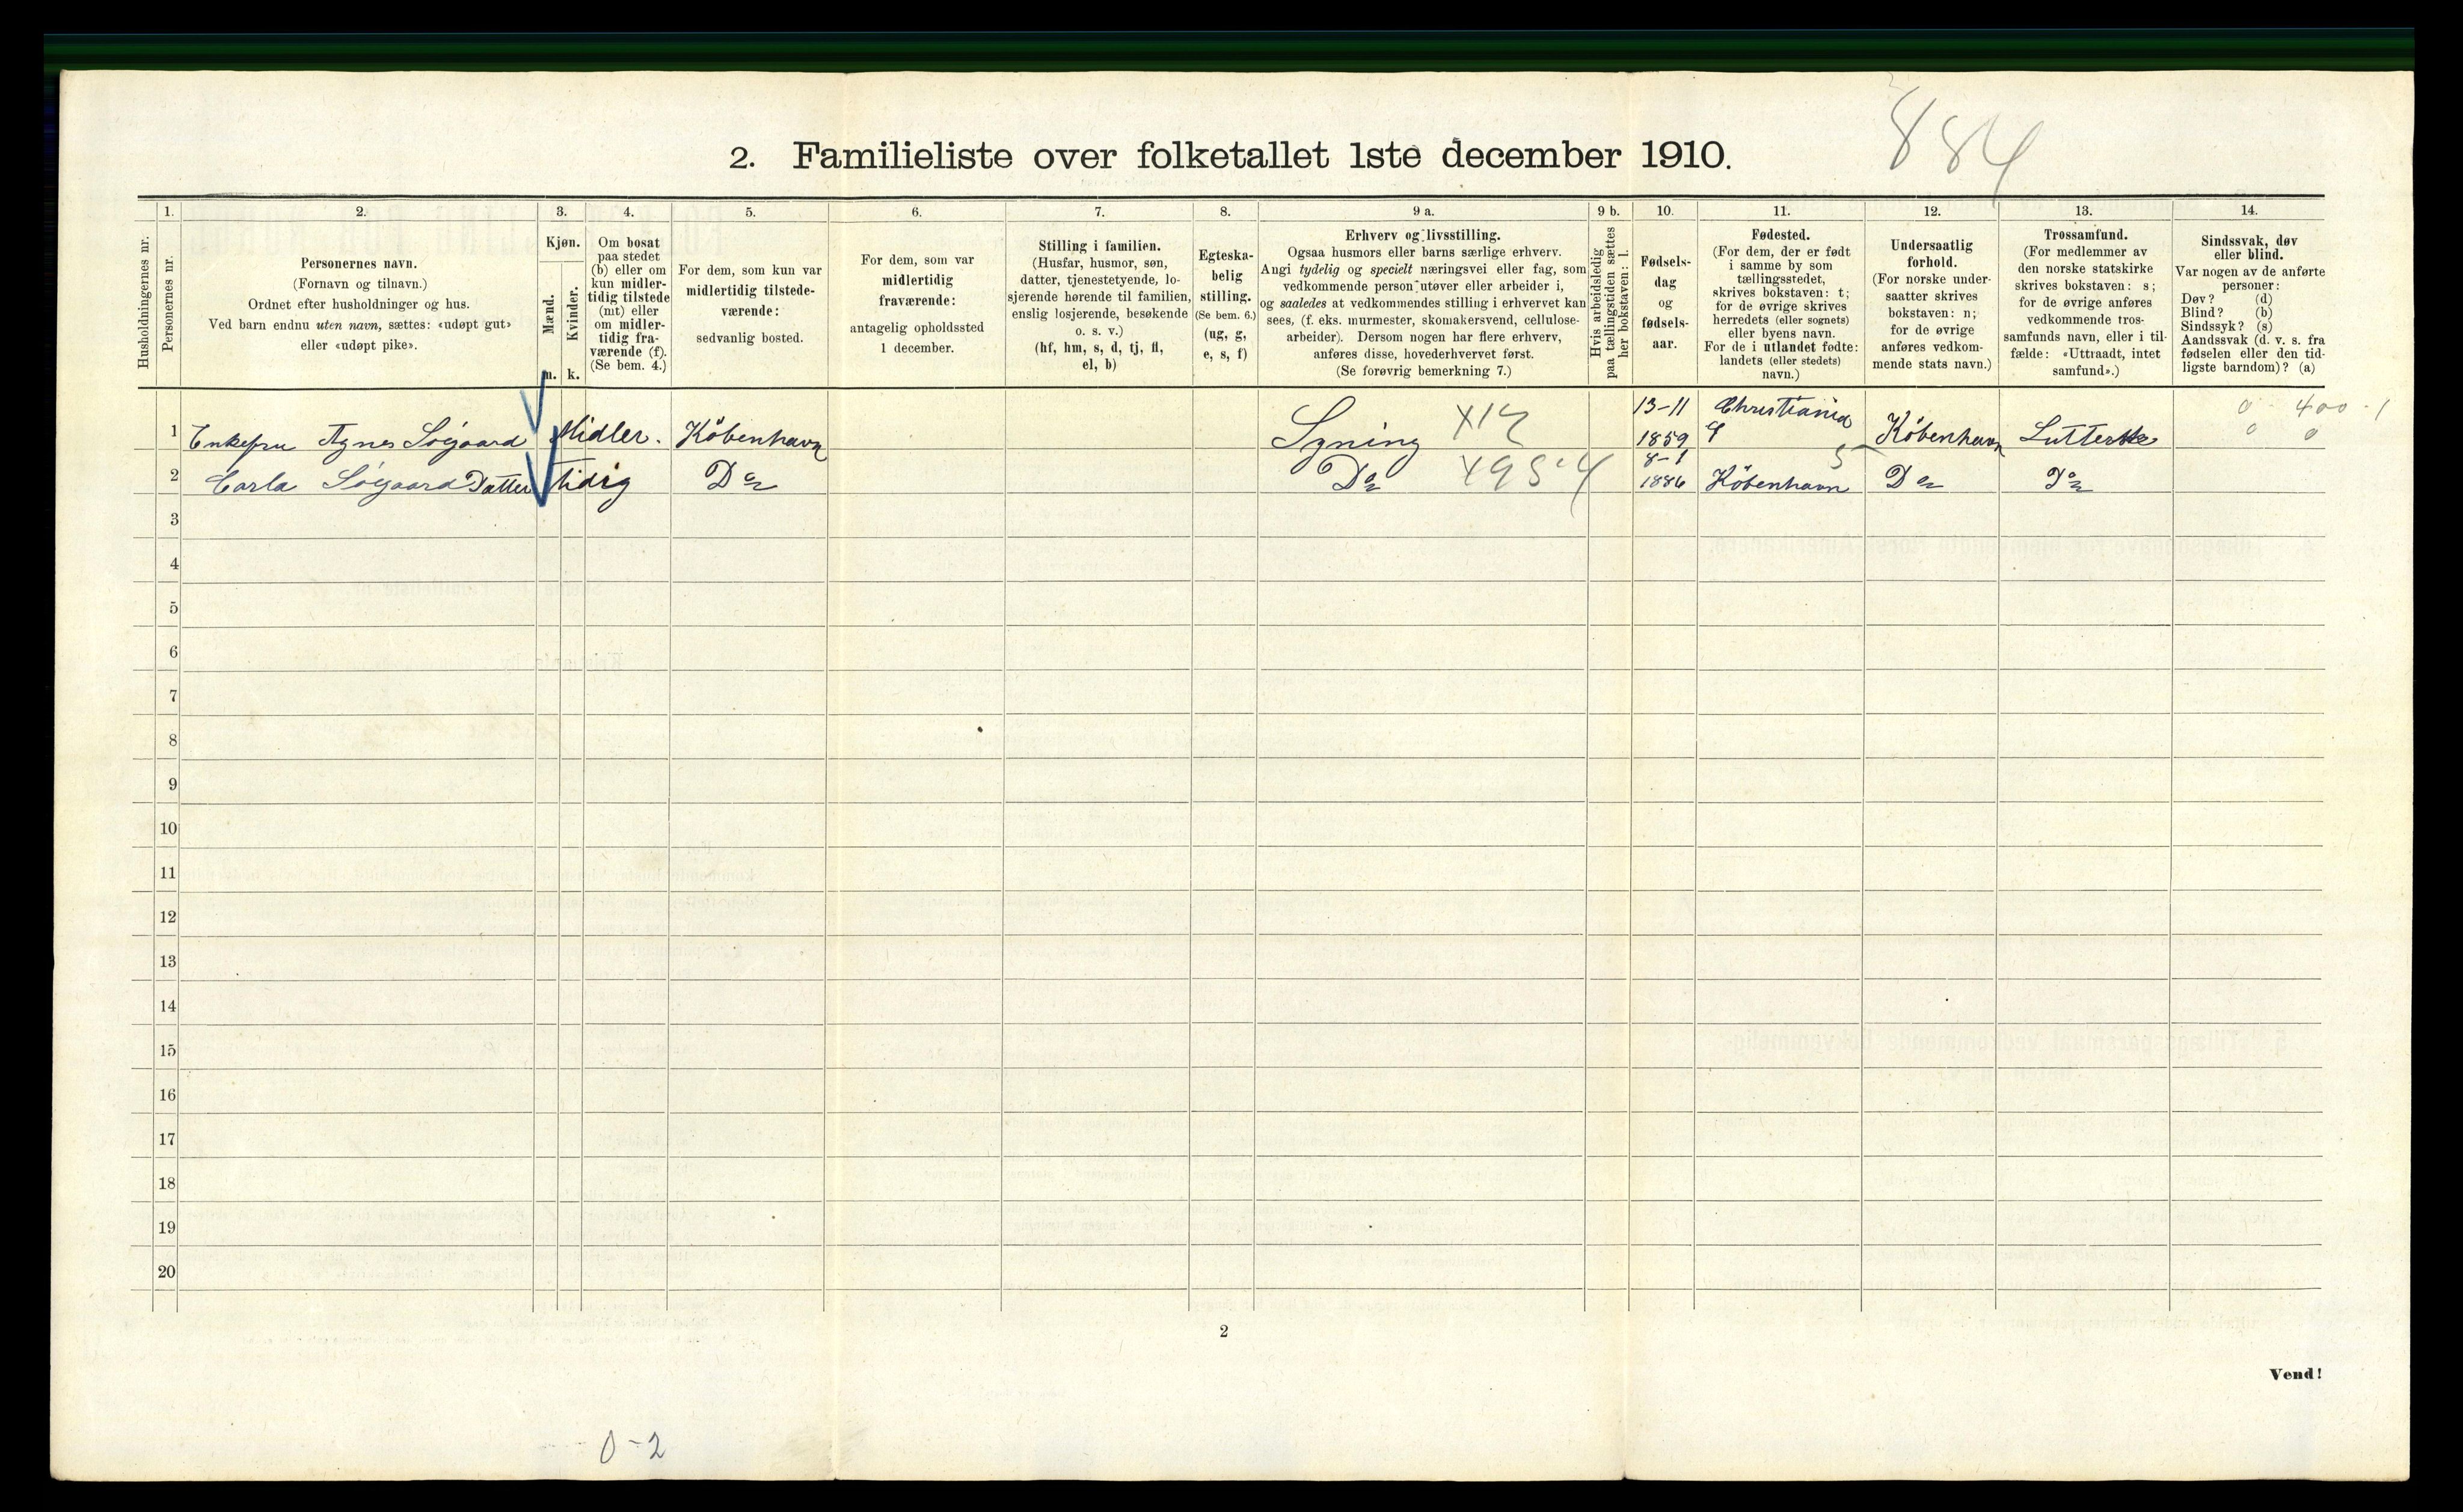 884
2. Familieliste over folketallet 1ste december 1910.
1. 2. 3. 4. 5. 6. 7. 8. 9 a. 9 b. 10. 11. 12. 13. 14.
Husholdningernes nr.
Personernes nr.
Personernes navn.
(Fornavn og tilnavn.)
Ordnet efter husholdninger og hus.
Ved barn endnu uten navn, sættes: «udøpt gut»
eller «udøpt pike».
Kjøn.
Mænd.
Kvinder.
m. k.
Om bosat
paa stedet
(b) eller om
kun midler-
tidig tilstede
(mt) eller
om midler-
tidig fra-
værende (f).
(Se bem. 4.)
For dem, som kun var
midlertidig tilstede-
værende:
sedvanlig bosted.
For dem, som var
midlertidig
fraværende:
antagelig opholdssted
1 december.
Stilling i familien.
(Husfar, husmor, søn,
datter, tjenestetyende, lo-
sjerende hørende til familien,
enslig losjerende, besøkende
o. s. v.)
(hf, hm, s, d, tj, fl,
el, b)
Egteska-
belig
stilling.
(Se bem. 6.)
(ug, g,
e, s, f)
Erhverv og livsstilling.
Ogsaa husmors eller barns særlige erhverv.
Angi tydelig og specielt næringsvei eller fag, som
vedkommende person utøver eller arbeider i,
og saaledes at vedkommendes stilling i erhvervet kan
sees, (f. eks. murmester, skomakersvend, cellulose-
arbeider). Dersom nogen har flere erhverv,
anføres disse, hovederhvervet først.
(Se forøvrig bemerkning 7.)
Hvis arbeidsledig
paa tællingstiden sættes
her bokstaven: l.
Fødsels-
dag
og
fødsels-
aar.
Fødested.
(For dem, der er født
i samme by som
tællingsstedet,
skrives bokstaven: t;
for de øvrige skrives
herredets (eller sognets)
eller byens navn.
For de i utlandet fødte:
landets (eller stedets)
navn.)
Undersaatlig
forhold.
(For norske under-
saatter skrives
bokstaven: n;
for de øvrige
anføres vedkom-
mende stats navn.)
Trossamfund.
(For medlemmer av
den norske statskirke
skrives bokstaven: s;
for de øvrige anføres
vedkommende tros-
samfunds navn, eller i til-
fælde: «Uttraadt, intet
samfund».)
Sindssvak, døv
eller blind.
Var nogen av de anførte
personer:
Døv? (d)
Blind? (b)
Sindssyk? (s)
Aandssvak (d. v. s. fra
fødselen eller den tid-
ligste barndom)? (a)
13-11 Christiania 0 400-1
1 Enkefru Agnes Söjgaard Midler. Köbenhavn Syning X12 1859 Köbenhavn Lutterske 0 0
8-1
2 Carla Söjgaard Datter tidig Do Do X95-4 1886 Köbenhavn Do Do
3
4
5
6
7
8
9
10
11
12
13
14
15
16
17
18
19
20
2
Vend!
0-2